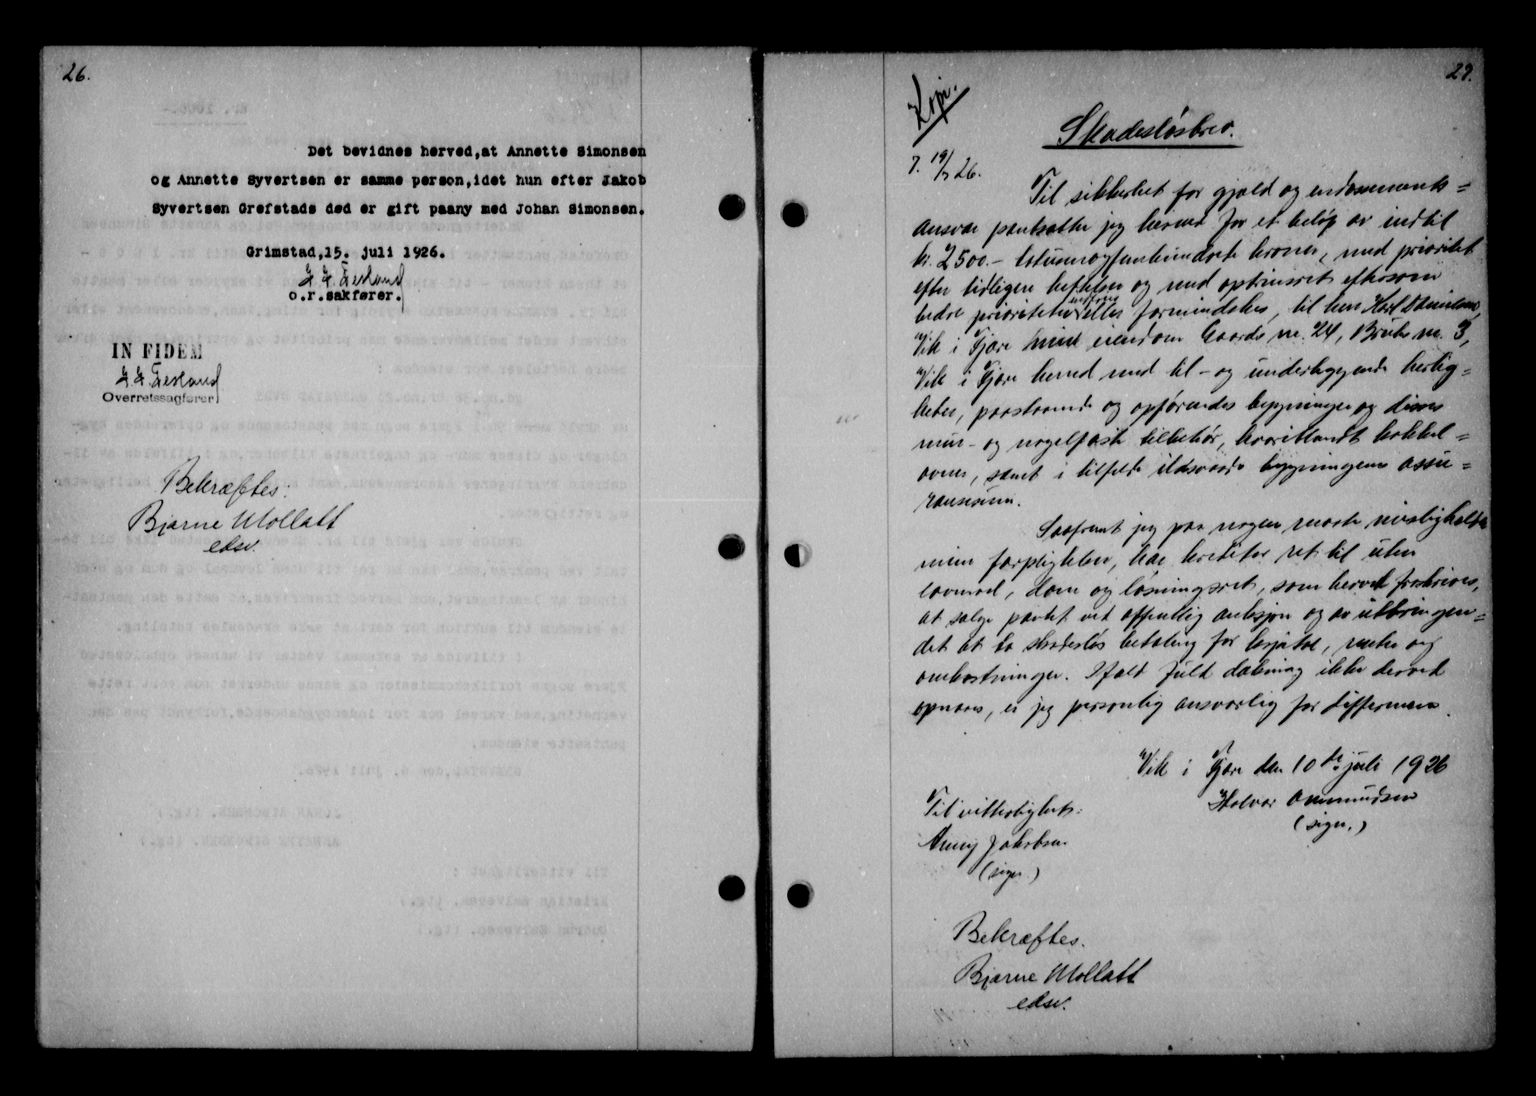 26.
Det bevidnes herved,at Annette Simonsen
og Annette Syvertsen er samme person,idet hun efter Jakob
Syvertsen Grefstads død er gift paany med Johan Simonsen.
Grimstad,15. juli 1926.
o.r.sakfører.
IN FIDEM
Overretssagfører
Bekræftes:
Bjarne Mollatt
edsv.
27.
Kopi.
Skadesløsbrev.
7. 19/7 26.
Til sikkerhet for gjæld og endossements-
ansvar pantsætter jeg herved for et beløp av indtil
kr. 2500.- totusenogfemhundrede kroner, med prioritet
efter tidligere heftelser og med optrinsret eftersom
bedre prioriteter indfries eller formindskes, til herr Karl
Vik i Fjære min eiendom Gaards nr. 24, Bruks nr. 3,
Vik i Fjære herred med til- og underliggende herlig-
heter, paastaaende og opførendes bygninger og disses
mur- og nagelfaste tilbehør, hvoriblandt kakkel-
ovner, samt i tilfelde ildsvaade bygningenes assu-
ransesum.
Saafremt jeg paa nogen maate misligholder
min forpligtelse, har kreditor ret til uten
lovmaal, dom og løsningsret, som herved fraskrives,
at sælge pantet ved offentlig auksjon og av utbringen-
det at ta skadesløs betaling for kapital, renter og
omkostninger. Ifald fuld dækning ikke derved
opnaaes, er jeg personlig ansvarlig for differansen.
Vik i Fjære den 10de juli 1926
Halvor Ommundsen
(sign.)
Til vitterlighet:
Anny Jakobsen
(sign.)
Bekræftes.
Bjarne Mollatt
edsv.